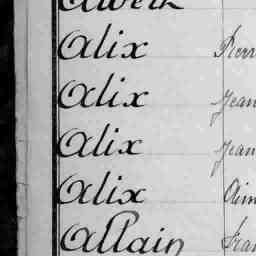 Alix Pierr
Alix Jean
Alix Jean
Alix Aim
Allain Fran